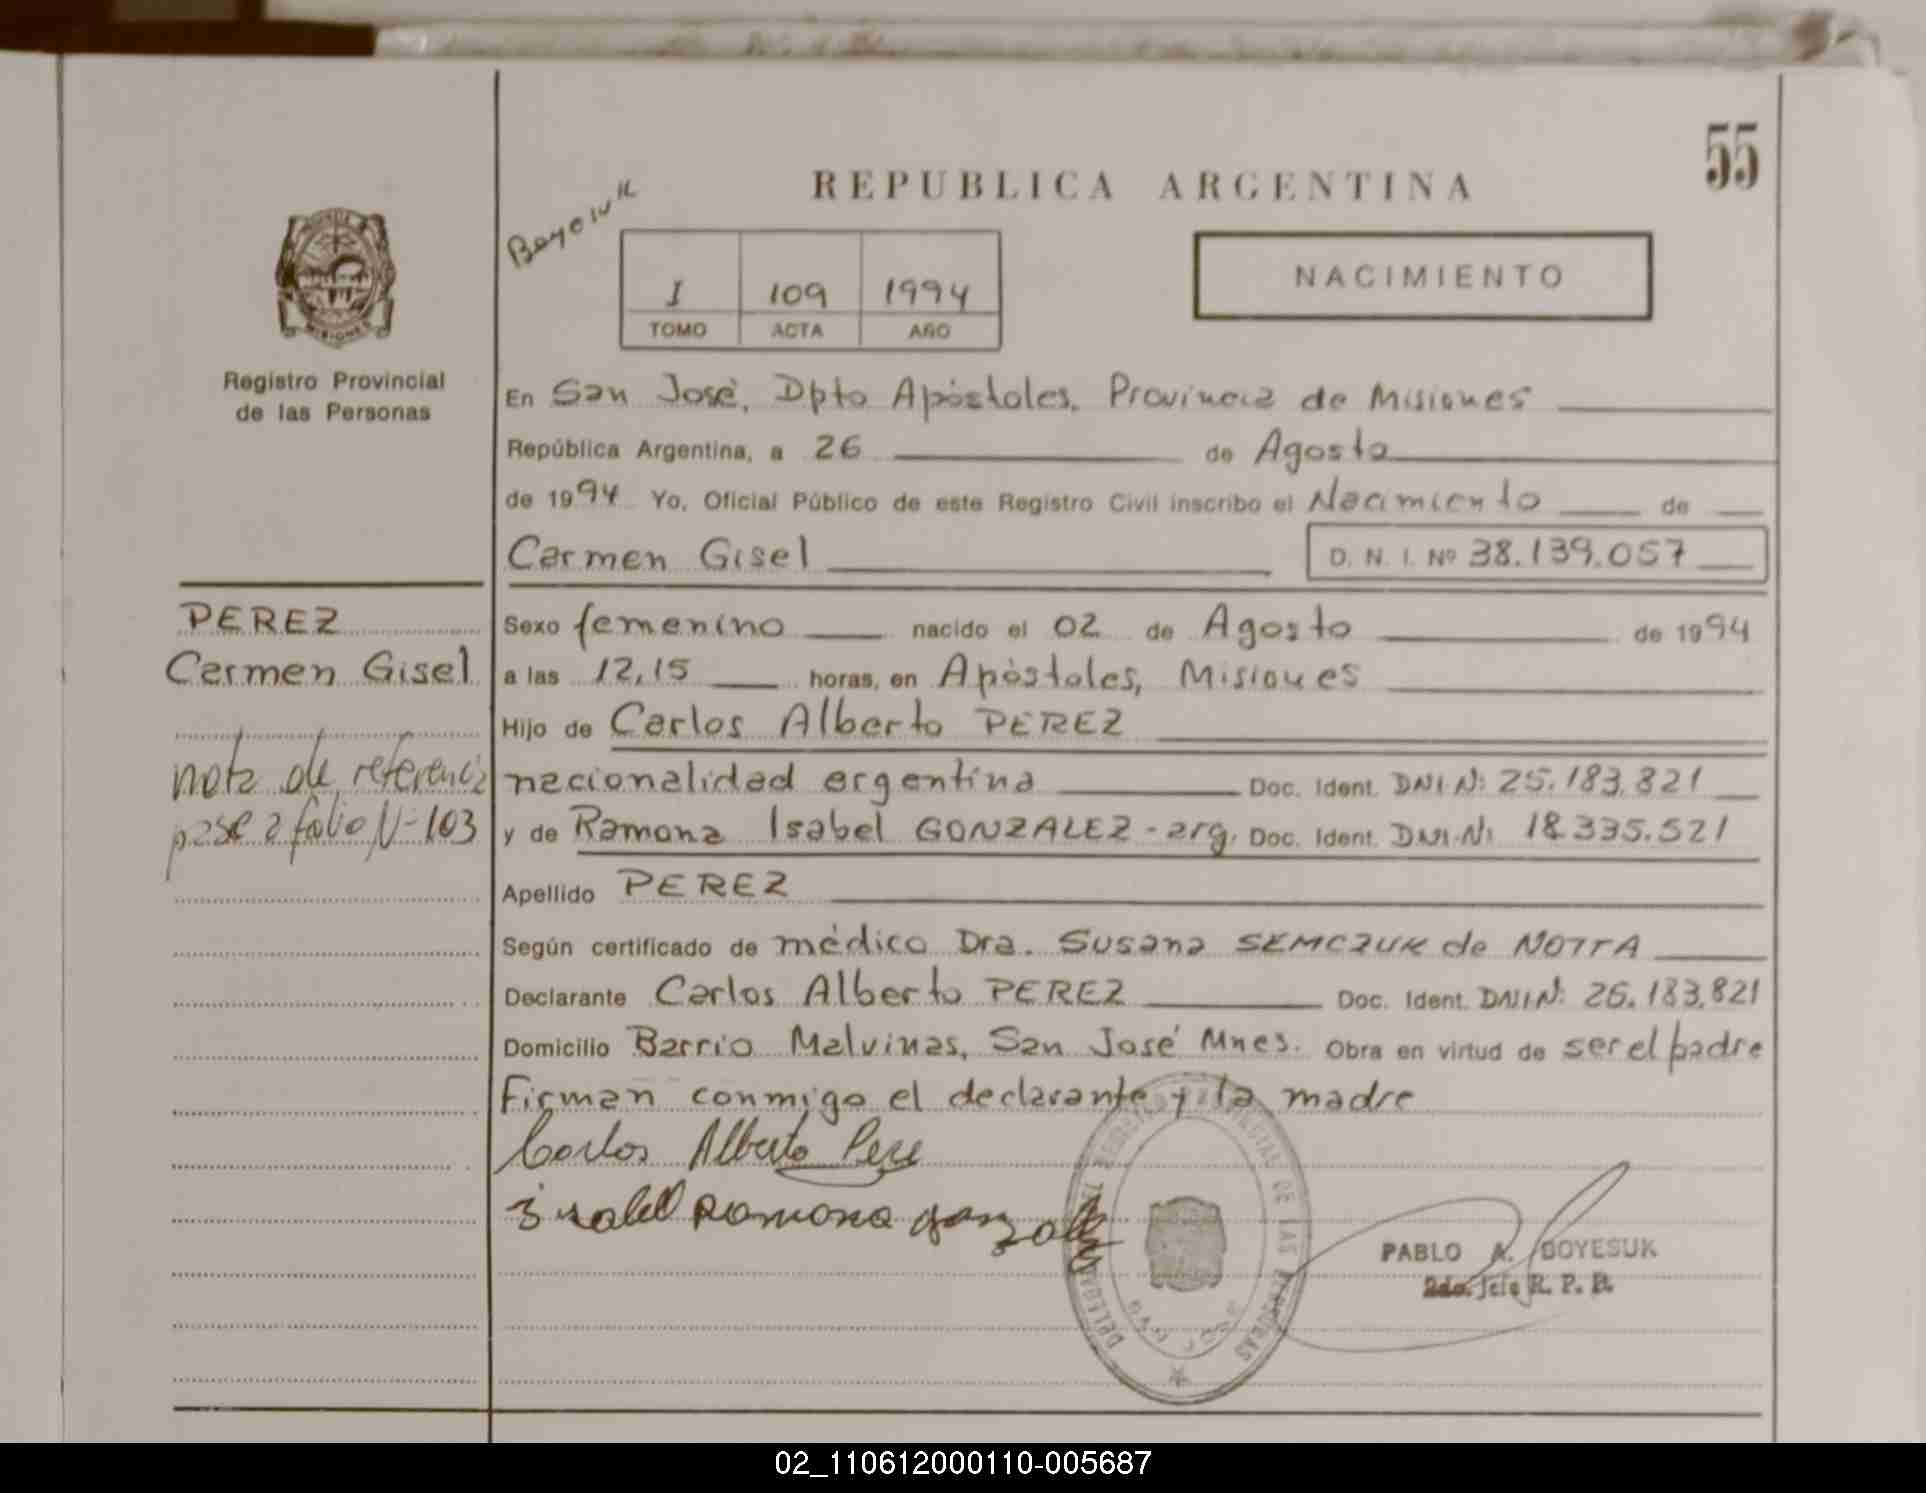 55
REPUBLICA ARGENTINA
NACIMIENTO
I 109 1994
TOMO ACTA AÑO
MISIONES
Registro Provincial
de las Personas
En San José, Dpto Apóstoles, Provincia de Misiones
República Argentina, a 26 de Agosto
de 1994 Yo, Oficial Público de este Registro Civil inscribo el Nacimiento de
Carmen Gisel D. N. I. Nº 38.139.057
PEREZ
Carmen Gisel
nota de referencia
pase a folio Nº 103
Sexo femenino nacido el 02 de Agosto de 1994
a las 12,15 horas, en Apóstoles, Misiones
Hijo de Carlos Alberto PEREZ
nacionalidad argentina Doc. Ident. DNI.Nº 25.183.821
y de Ramona Isabel GONZALEZ - arg. Doc. Ident. DNI.Nº 18.335.521
Apellido PEREZ
Según certificado de médico Dra. Susana SEMCZUK de NOTTA
Declarante Carlos Alberto PEREZ Doc. Ident. DNI.Nº 26.183.821
Domicilio Barrio Malvinas, San José Mnes. Obra en virtud de ser el padre
Firman conmigo el declarante y la madre
Carlos Alberto Pere
isabel Ramona gonzalez
DE LAS PERSONAS
SAN JOSE
PABLO A. BOYESUK
2do. Jefe R. P. P.
02_110612000110-005687